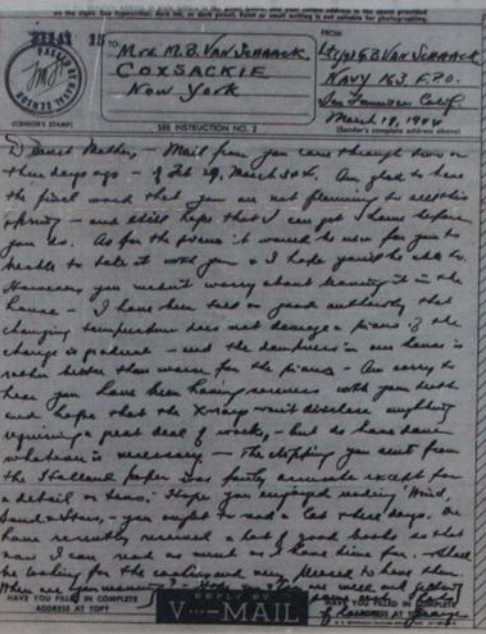 TO
FROM
Mrs M.B. VAN SCHAACK
COXSACKIE
New York
Lt (jg) G B VAN SCHAACK
NAVY 163, F.P.O.
San Francisco Calif
March 18, 1944
(CENSOR'S STAMP)
SEE INSTRUCTION NO. 2
(Sender's complete address above)
Dearest Mother, - Mail from you came through two or
three days ago - of Feb 29, March 3 & 4. Am glad to have
the final word that you are not planning to sell this
spring - and still hope that I can get home before
you do. As for the piano it would be nice for you to
be able to take it with you & I hope you'll be able to.
However you needn't worry about leaving it in the
house - I have been told on good authority that
changing temperature does not damage a piano if the
change is gradual - and the dampness in our house is
rather better than worse for the piano - Am sorry to
hear you have been having with your teeth
and hope that the X-rays won't disclose anything
requiring a great deal of work, - but do have done
whatever is necessary - The clipping you sent from
the Holland paper was fairly accurate except for
a detail or two. Hope you enjoyed reading "Wind,
Sand & Stars, - you ought to read a lot these days. We
have recently received a lot of good books so that
now I can read as much as I have time for. - Shall
be looking for the and very pleased to have them.
When are you
HAVE YOU FILLED IN COMPLETE
ADDRESS AT TOP?
REPLY BY
V···—MAIL
HAVE YOU FILLED IN COMPLETE
ADDRESS AT TOP?
George